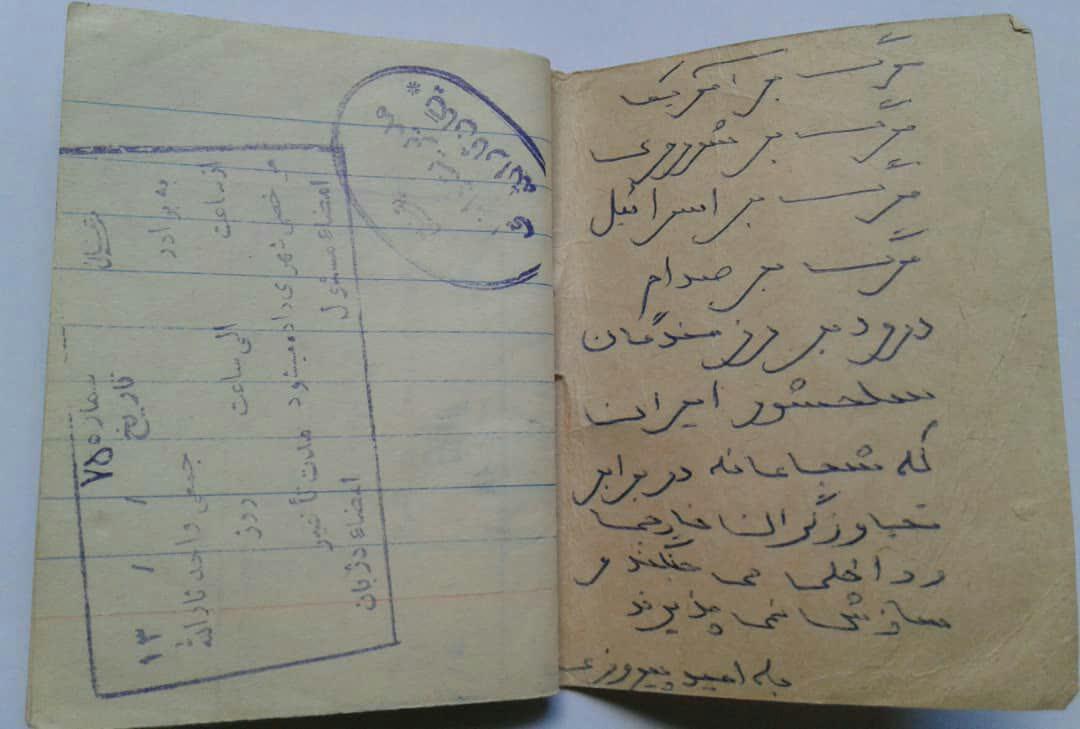 مرگ بر آمریکا
مرگ بر شوروی
مرگ بر اسرائیل
مرگ بر صدام
درود بر رزمندگان
سلحشور ایران
که شجاعانه در برابر
تجاوزگران خارجی
و داخلی می جنگند و
سازش نمی پذیرند
به امید پیروزی
شماره ۷۵
تاریخ / / ۱۳
به برادر جمعی واحد ثارالله
از ساعت الی ساعت روز
مرخصی شهری داده میشود مدت تأخیر
امضاء مسئول امضاء دژبان